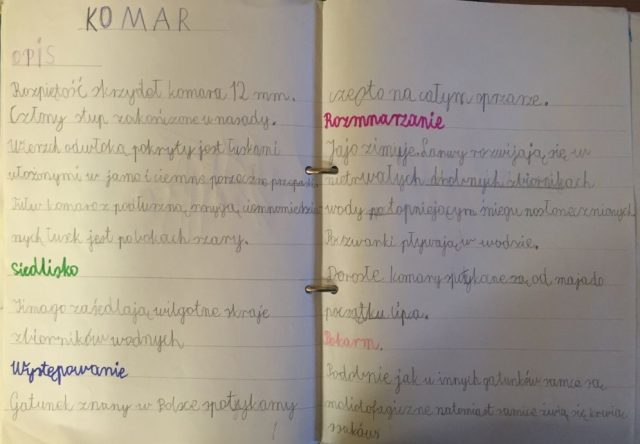 KOMAR
OPIS
Rozpiętość skrzydeł komara 12 mm.
Człony stup zakończone u nasady.
Wierzch odwłoka pokryty jest łuskami
ułożonymi w jasne i ciemne poprzeczne przepaski
komara z podłużną, smugą, ciemnomiedzia
nych łusek jest po bokach szary.
Siedlisko
Imago zasiedlają wilgotne skraje
zbiorników wodnych
Występowanie
Gatunek znany w Polsce spotykamy
często na całym oprzaze.
Rozmnarzanie
Jajo zimuje. Larwy rozwijają się w
nietrwałych drobnych zbiornikach
wody po topniejącym śniegu nasłonecznionych
Poczwarki pływają w wodzie.
Dorosłe komary spotykane są od maja do
początku lipa.
Pokarm.
Podobnie jak u innych gatunków samce są
melidofagiczne natomiast samice żywią się krwią
ssaków